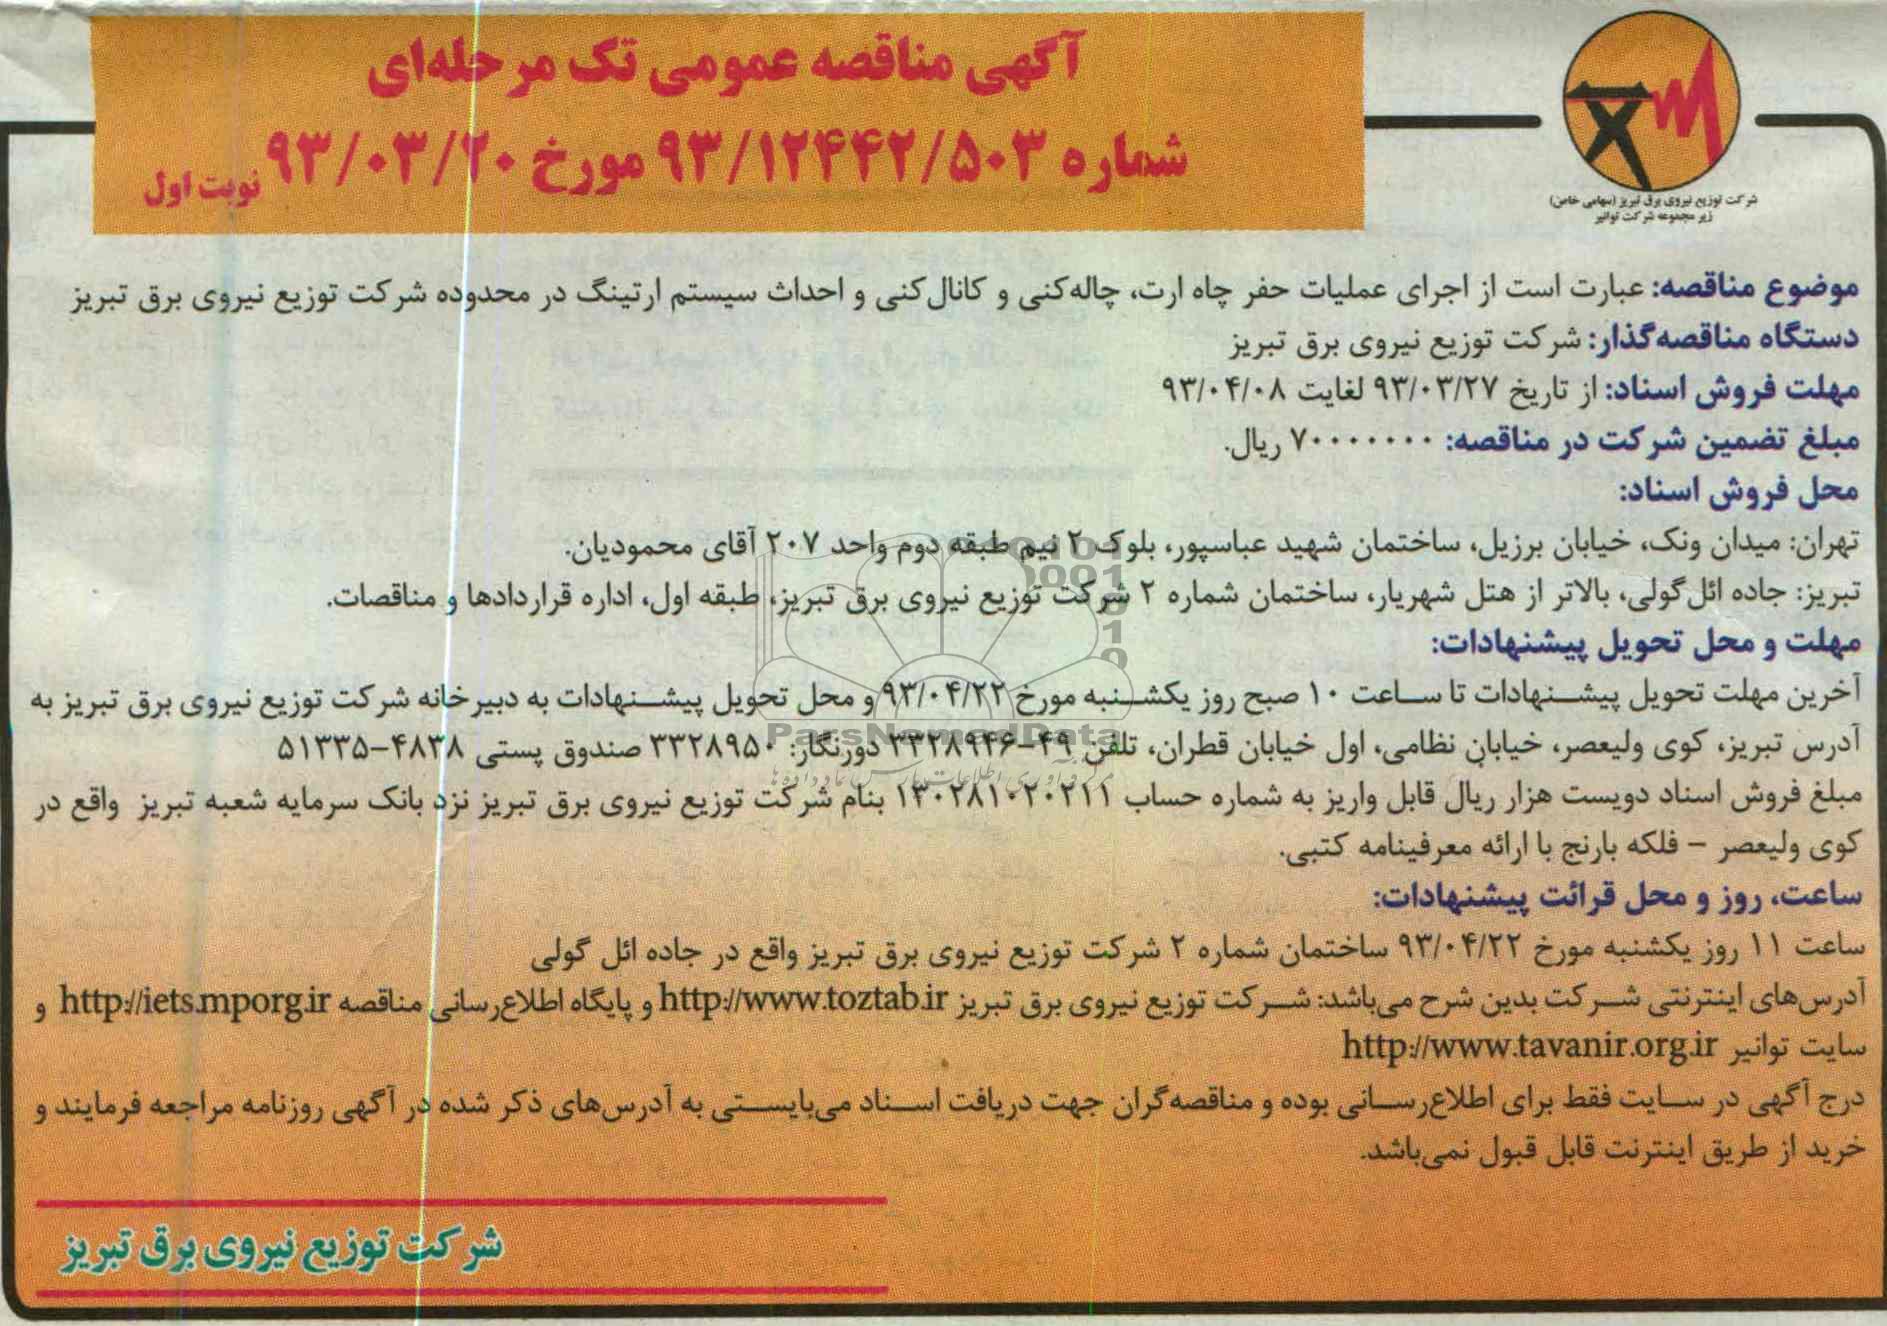 آگهی مناقصه عمومی تک مرحله‌ای
شماره ۹۳/۱۲۴۴۲/۵۰۳ مورخ ۹۳/۰۳/۲۰ نوبت اول
شرکت توزیع نیروی برق تبریز (سهامی خاص)
زیر مجموعه شرکت توانیر
موضوع مناقصه: عبارت است از اجرای عملیات حفر چاه ارت، چاله‌کنی و کانال‌کنی و احداث سیستم ارتینگ در محدوده شرکت توزیع نیروی برق تبریز
دستگاه مناقصه‌گذار: شرکت توزیع نیروی برق تبریز
مهلت فروش اسناد: از تاریخ ۹۳/۰۳/۲۷ لغایت ۹۳/۰۴/۰۸
مبلغ تضمین شرکت در مناقصه: ۷۰۰۰۰۰۰۰ ریال.
محل فروش اسناد:
تهران: میدان ونک، خیابان برزیل، ساختمان شهید عباسپور، بلوک ۲ نیم طبقه دوم واحد ۲۰۷ آقای محمودیان.
تبریز: جاده ائل‌گولی، بالاتر از هتل شهریار، ساختمان شماره ۲ شرکت توزیع نیروی برق تبریز، طبقه اول، اداره قراردادها و مناقصات.
مهلت و محل تحویل پیشنهادات:
آخرین مهلت تحویل پیشنهادات تا ساعت ۱۰ صبح روز یکشنبه مورخ ۹۳/۰۴/۲۲ و محل تحویل پیشنهادات به دبیرخانه شرکت توزیع نیروی برق تبریز به
آدرس تبریز، کوی ولیعصر، خیابان نظامی، اول خیابان قطران، تلفن ۴۹-۳۳۲۸۹۴۶ دورنگار: ۳۳۲۸۹۵۰ صندوق پستی ۴۸۳۸-۵۱۳۳۵
مبلغ فروش اسناد دویست هزار ریال قابل واریز به شماره حساب ۱۳۰۲۸۱۰۲۰۲۱۱ بنام شرکت توزیع نیروی برق تبریز نزد بانک سرمایه شعبه تبریز واقع در
کوی ولیعصر – فلکه بارنج با ارائه معرفینامه کتبی.
ساعت، روز و محل قرائت پیشنهادات:
ساعت ۱۱ روز یکشنبه مورخ ۹۳/۰۴/۲۲ ساختمان شماره ۲ شرکت توزیع نیروی برق تبریز واقع در جاده ائل گولی
آدرس‌های اینترنتی شرکت بدین شرح می‌باشد: شرکت توزیع نیروی برق تبریز http://www.toztab.ir و پایگاه اطلاع‌رسانی مناقصه http://iets.mporg.ir و
سایت توانیر http://www.tavanir.org.ir
درج آگهی در سایت فقط برای اطلاع‌رسانی بوده و مناقصه‌گران جهت دریافت اسناد می‌بایستی به آدرس‌های ذکر شده در آگهی روزنامه مراجعه فرمایند و
خرید از طریق اینترنت قابل قبول نمی‌باشد.
شرکت توزیع نیروی برق تبریز
ParsNamadData